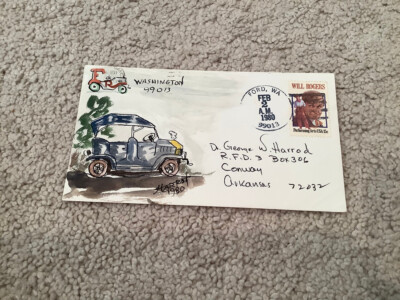 FORD
WASHINGTON
99013
FORD, WA
FEB
2
A.M.
1980
99013
WILL ROGERS
Performing Arts USA 15c
Dr. George W. Harrod
R.F.D. 3 Box 306
Conway
Arkansas 72032